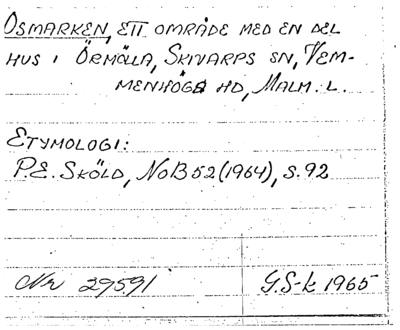 OSMARKEN, ETT OMRÅDE MED EN DEL
HUS I ÖRMÖLLA, SKIVARPS SN, VEM-
MENHÖGS HD, MALM. L.
ETYMOLOGI:
P.E. SKÖLD, NoB 52 (1964), S. 92
Nr 29591
G.S-k 1965